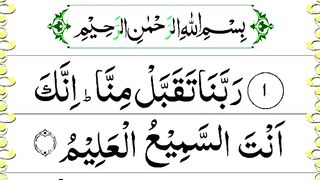 بِسْمِ اللهِ الرَّحْمٰنِ الرَّحِيْمِ
١ رَبَّنَا تَقَبَّلْ مِنَّا ؕ اِنَّكَ
اَنْتَ السَّمِيْعُ الْعَلِيْمُ ۝